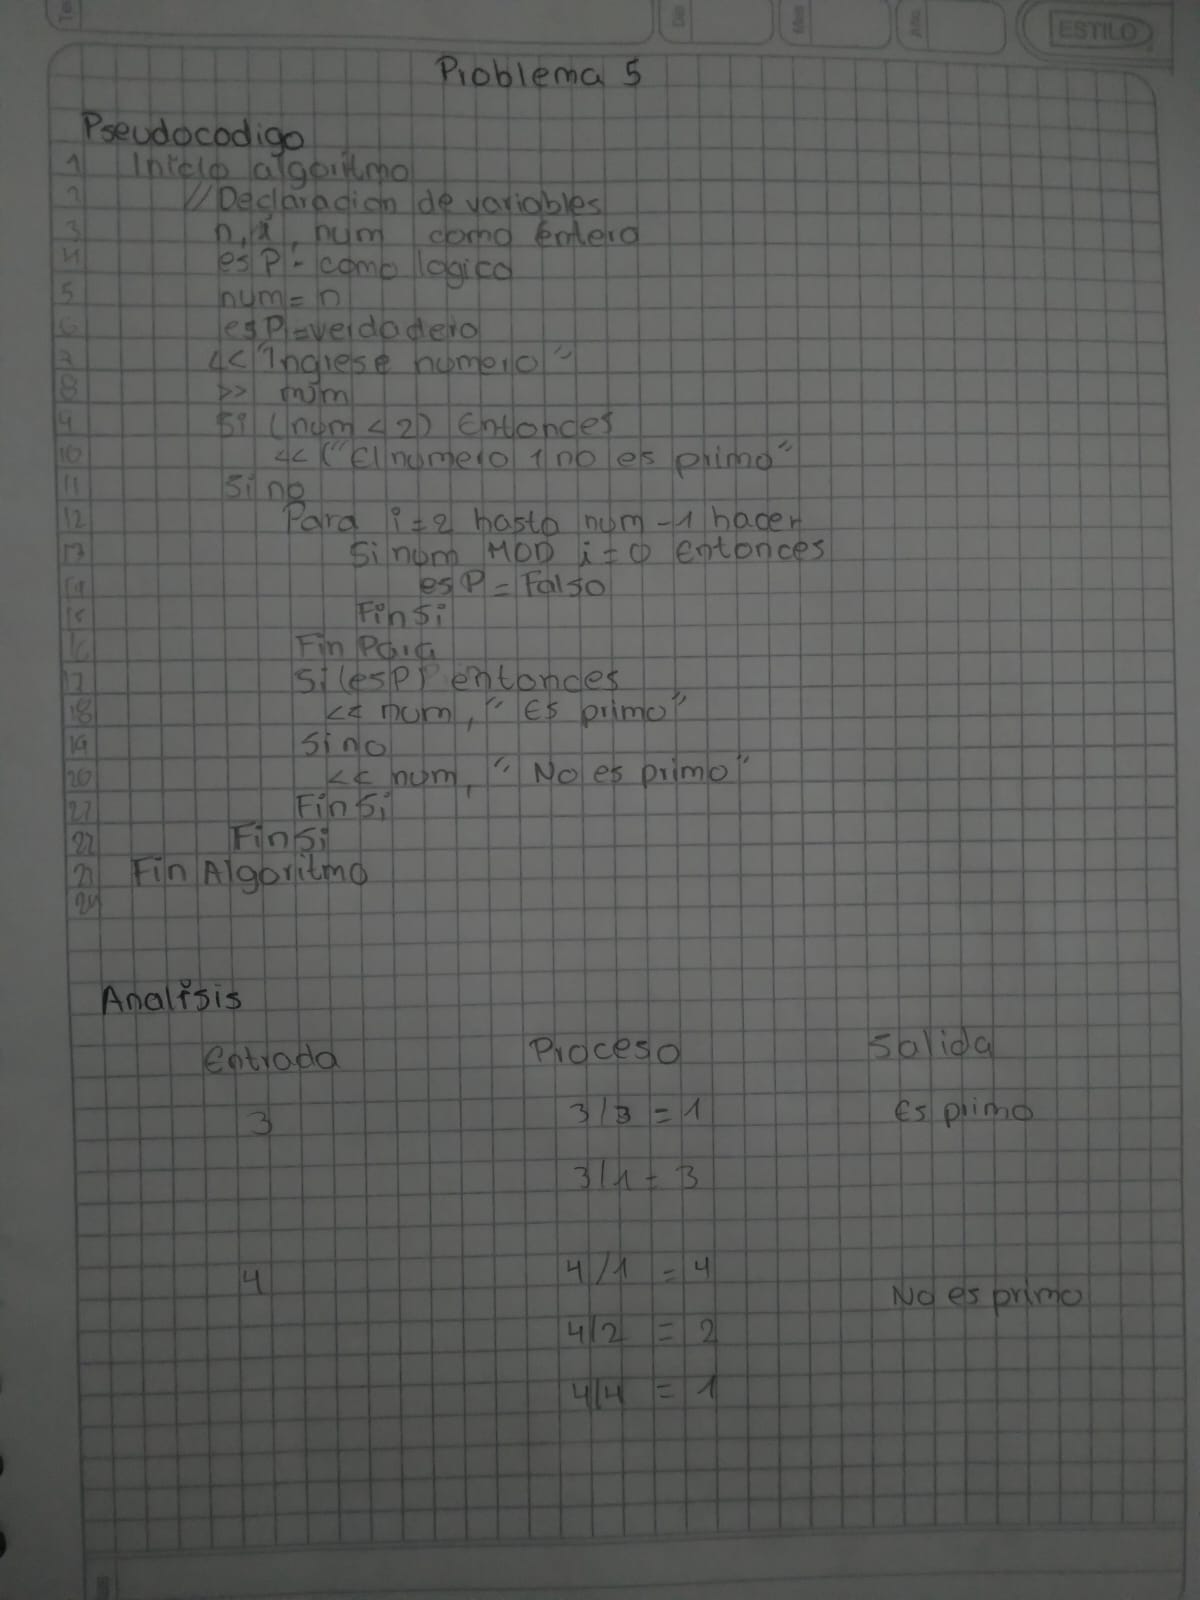 ESTILO
Problema 5
Pseudocodigo
1 Inicio algoritmo
2 //Declaracion de variables
3 n, i, num como entero
4 es P - como logico
5 num = n
6 es P = verdadero
7 << "Ingrese numero"
8 >> num
9 Si (num < 2) Entonces
10 << ("El numero 1 no es primo"
11 Si no
12 Para i = 2 hasta num -1 hacer
13 Si num MOD i = 0 entonces
14 es P = Falso
15 Fin Si
16 Fin Para
17 Si (es P) entonces
18 << num, " Es primo"
19 Si no
20 << num, " No es primo"
21 Fin Si
22 Fin Si
23 Fin Algoritmo
24
Analisis
Entrada Proceso Salida
3 3/3 = 1 Es primo
3/1 = 3
4 4/1 = 4 No es primo
4/2 = 2
4/4 = 1